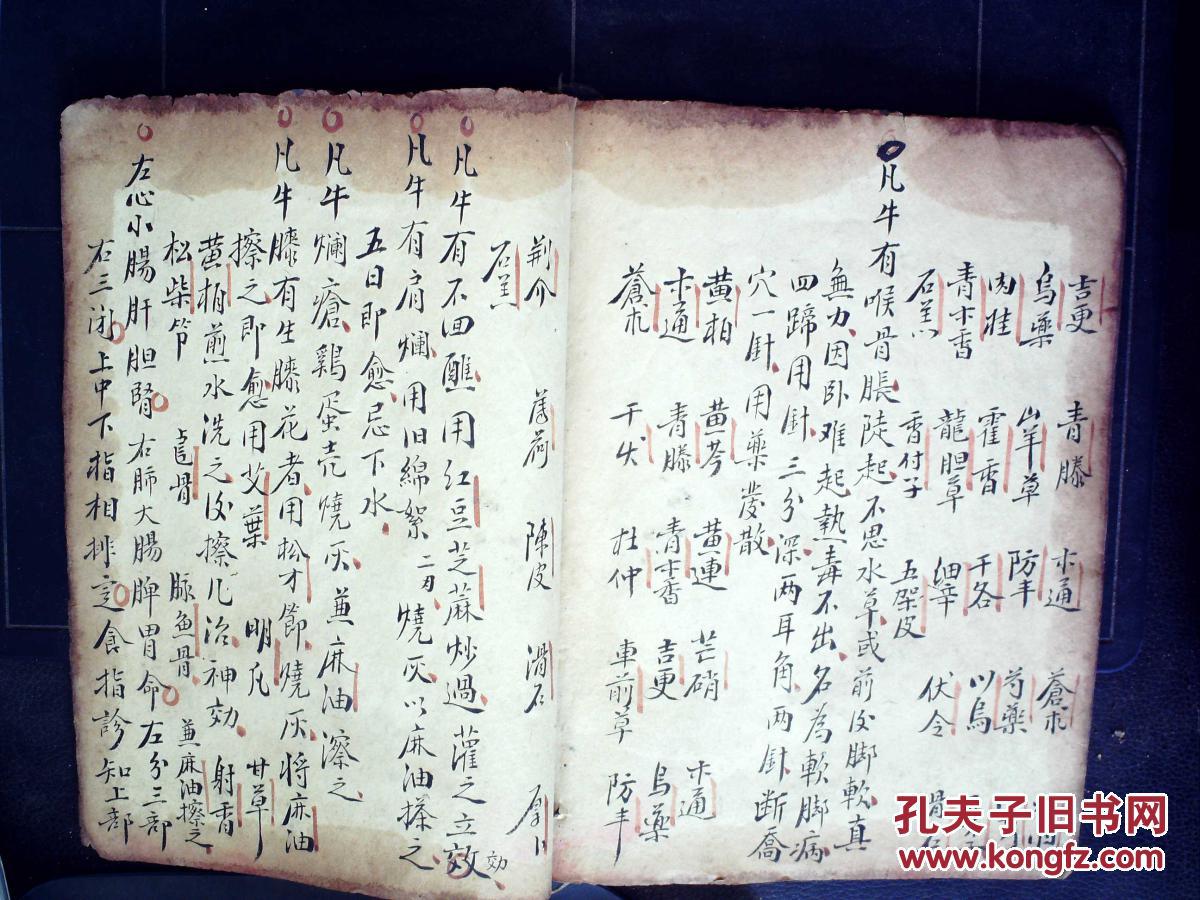 吉更 青藤 木通 蒼朮
烏藥 山羊草 防丰 芍藥
肉桂 霍香 干各 以烏
青木香 龍胆草 細辛 伏令
石羔 香付子 五架皮 骨石
凡牛有喉骨脹陡起不思水草或前後脚軟真
無力因卧难起熱毒不出名為軟脚病
四蹄用針三分深两耳角两針断喬
穴一針用藥發散
黄柏 黄芩 黄連 芒硝 木通
木通 青藤 青木香 吉更 烏藥
蒼朮 干 杜仲 車前草 防丰
荆介 薄荷 陳皮 滑石 厚
石羔
凡牛有不回醮用红豆芝蔴炒過灌之立效
効
凡牛有肩爛用旧綿絮二刃燒灰以麻油搽之
五日即愈忌下水
凡牛爛瘡鷄蛋壳燒灰兼麻油擦之
凡牛膝有生膝花者用松才節燒灰将麻油
擦之即愈用艾葉 明凡 甘草
黄栢煎水洗之後擦凡冶神効 射香
松柴节 骨 脉魚骨 兼麻油擦之
左心小腸肝胆腎右肺大腸脾胃命左分三部
右三 上中下指相排定食指診知上部
孔夫子旧书网
www.kongfz.com